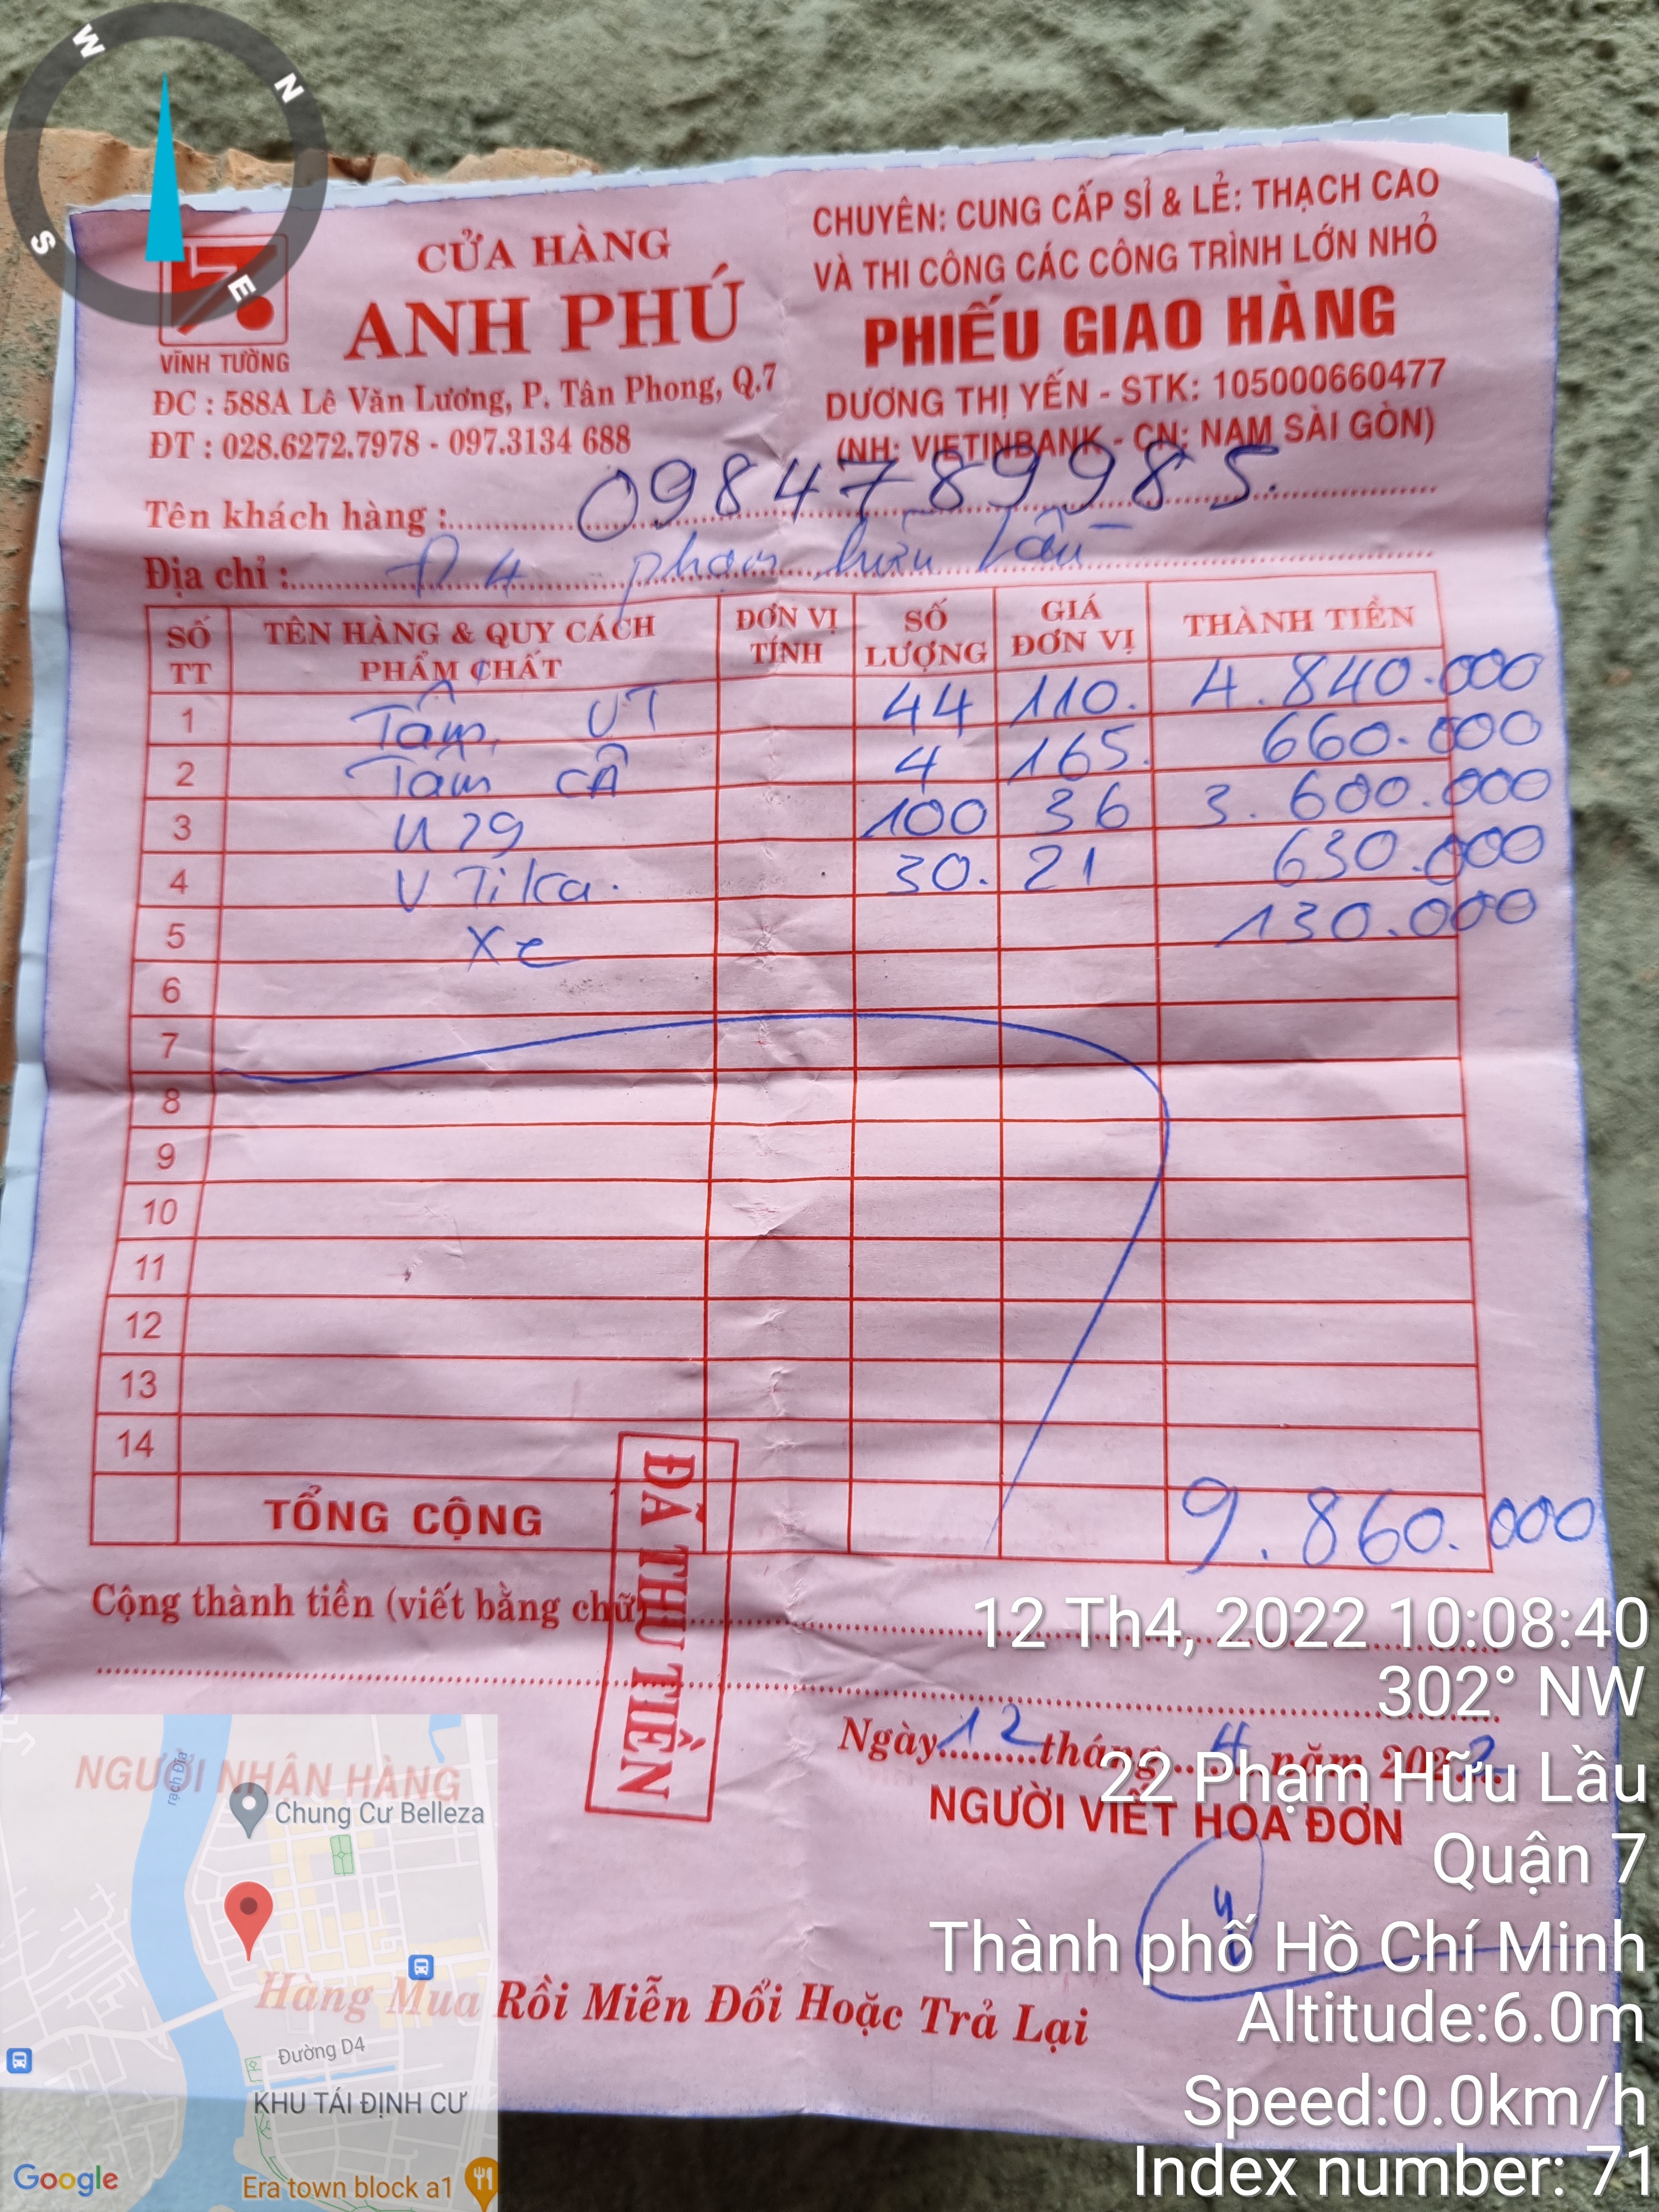 W
N
S
E
VĨNH TƯỜNG
CỬA HÀNG
ANH PHÚ
ĐC : 588A Lê Văn Lương, P. Tân Phong, Q.7
ĐT : 028.6272.7978 - 097.3134 688
CHUYÊN: CUNG CẤP SỈ & LẺ: THẠCH CAO
VÀ THI CÔNG CÁC CÔNG TRÌNH LỚN NHỎ
PHIẾU GIAO HÀNG
DƯƠNG THỊ YẾN - STK: 105000660477
(NH: VIETINBANK - CN: NAM SÀI GÒN)
Tên khách hàng : 0984789985.
Địa chỉ : Đ4 phạm hữu Lầu
SỐ TT TÊN HÀNG & QUY CÁCH PHẨM CHẤT ĐƠN VỊ TÍNH SỐ LƯỢNG GIÁ ĐƠN VỊ THÀNH TIỀN
1 Tấm VT 44 110. 4.840.000
2 Tấm CÂ 4 165. 660.000
3 U29 100 36 3.600.000
4 V Tika. 30. 21 630.000
5 Xe 130.000
6
7
8
9
10
11
12
13
14
TỔNG CỘNG 9.860.000
ĐÃ THU TIỀN
Cộng thành tiền (viết bằng chữ)
Ngày 12 tháng 4 năm 2022
NGƯỜI NHẬN HÀNG
NGƯỜI VIẾT HÓA ĐƠN
Hàng Mua Rồi Miễn Đổi Hoặc Trả Lại
12 Th4, 2022 10:08:40
302° NW
22 Phạm Hữu Lầu
Quận 7
Thành phố Hồ Chí Minh
Altitude:6.0m
Speed:0.0km/h
Index number: 71
rạch Đỉa
Chung Cư Belleza
Đường D4
KHU TÁI ĐỊNH CƯ
Era town block a1
Google